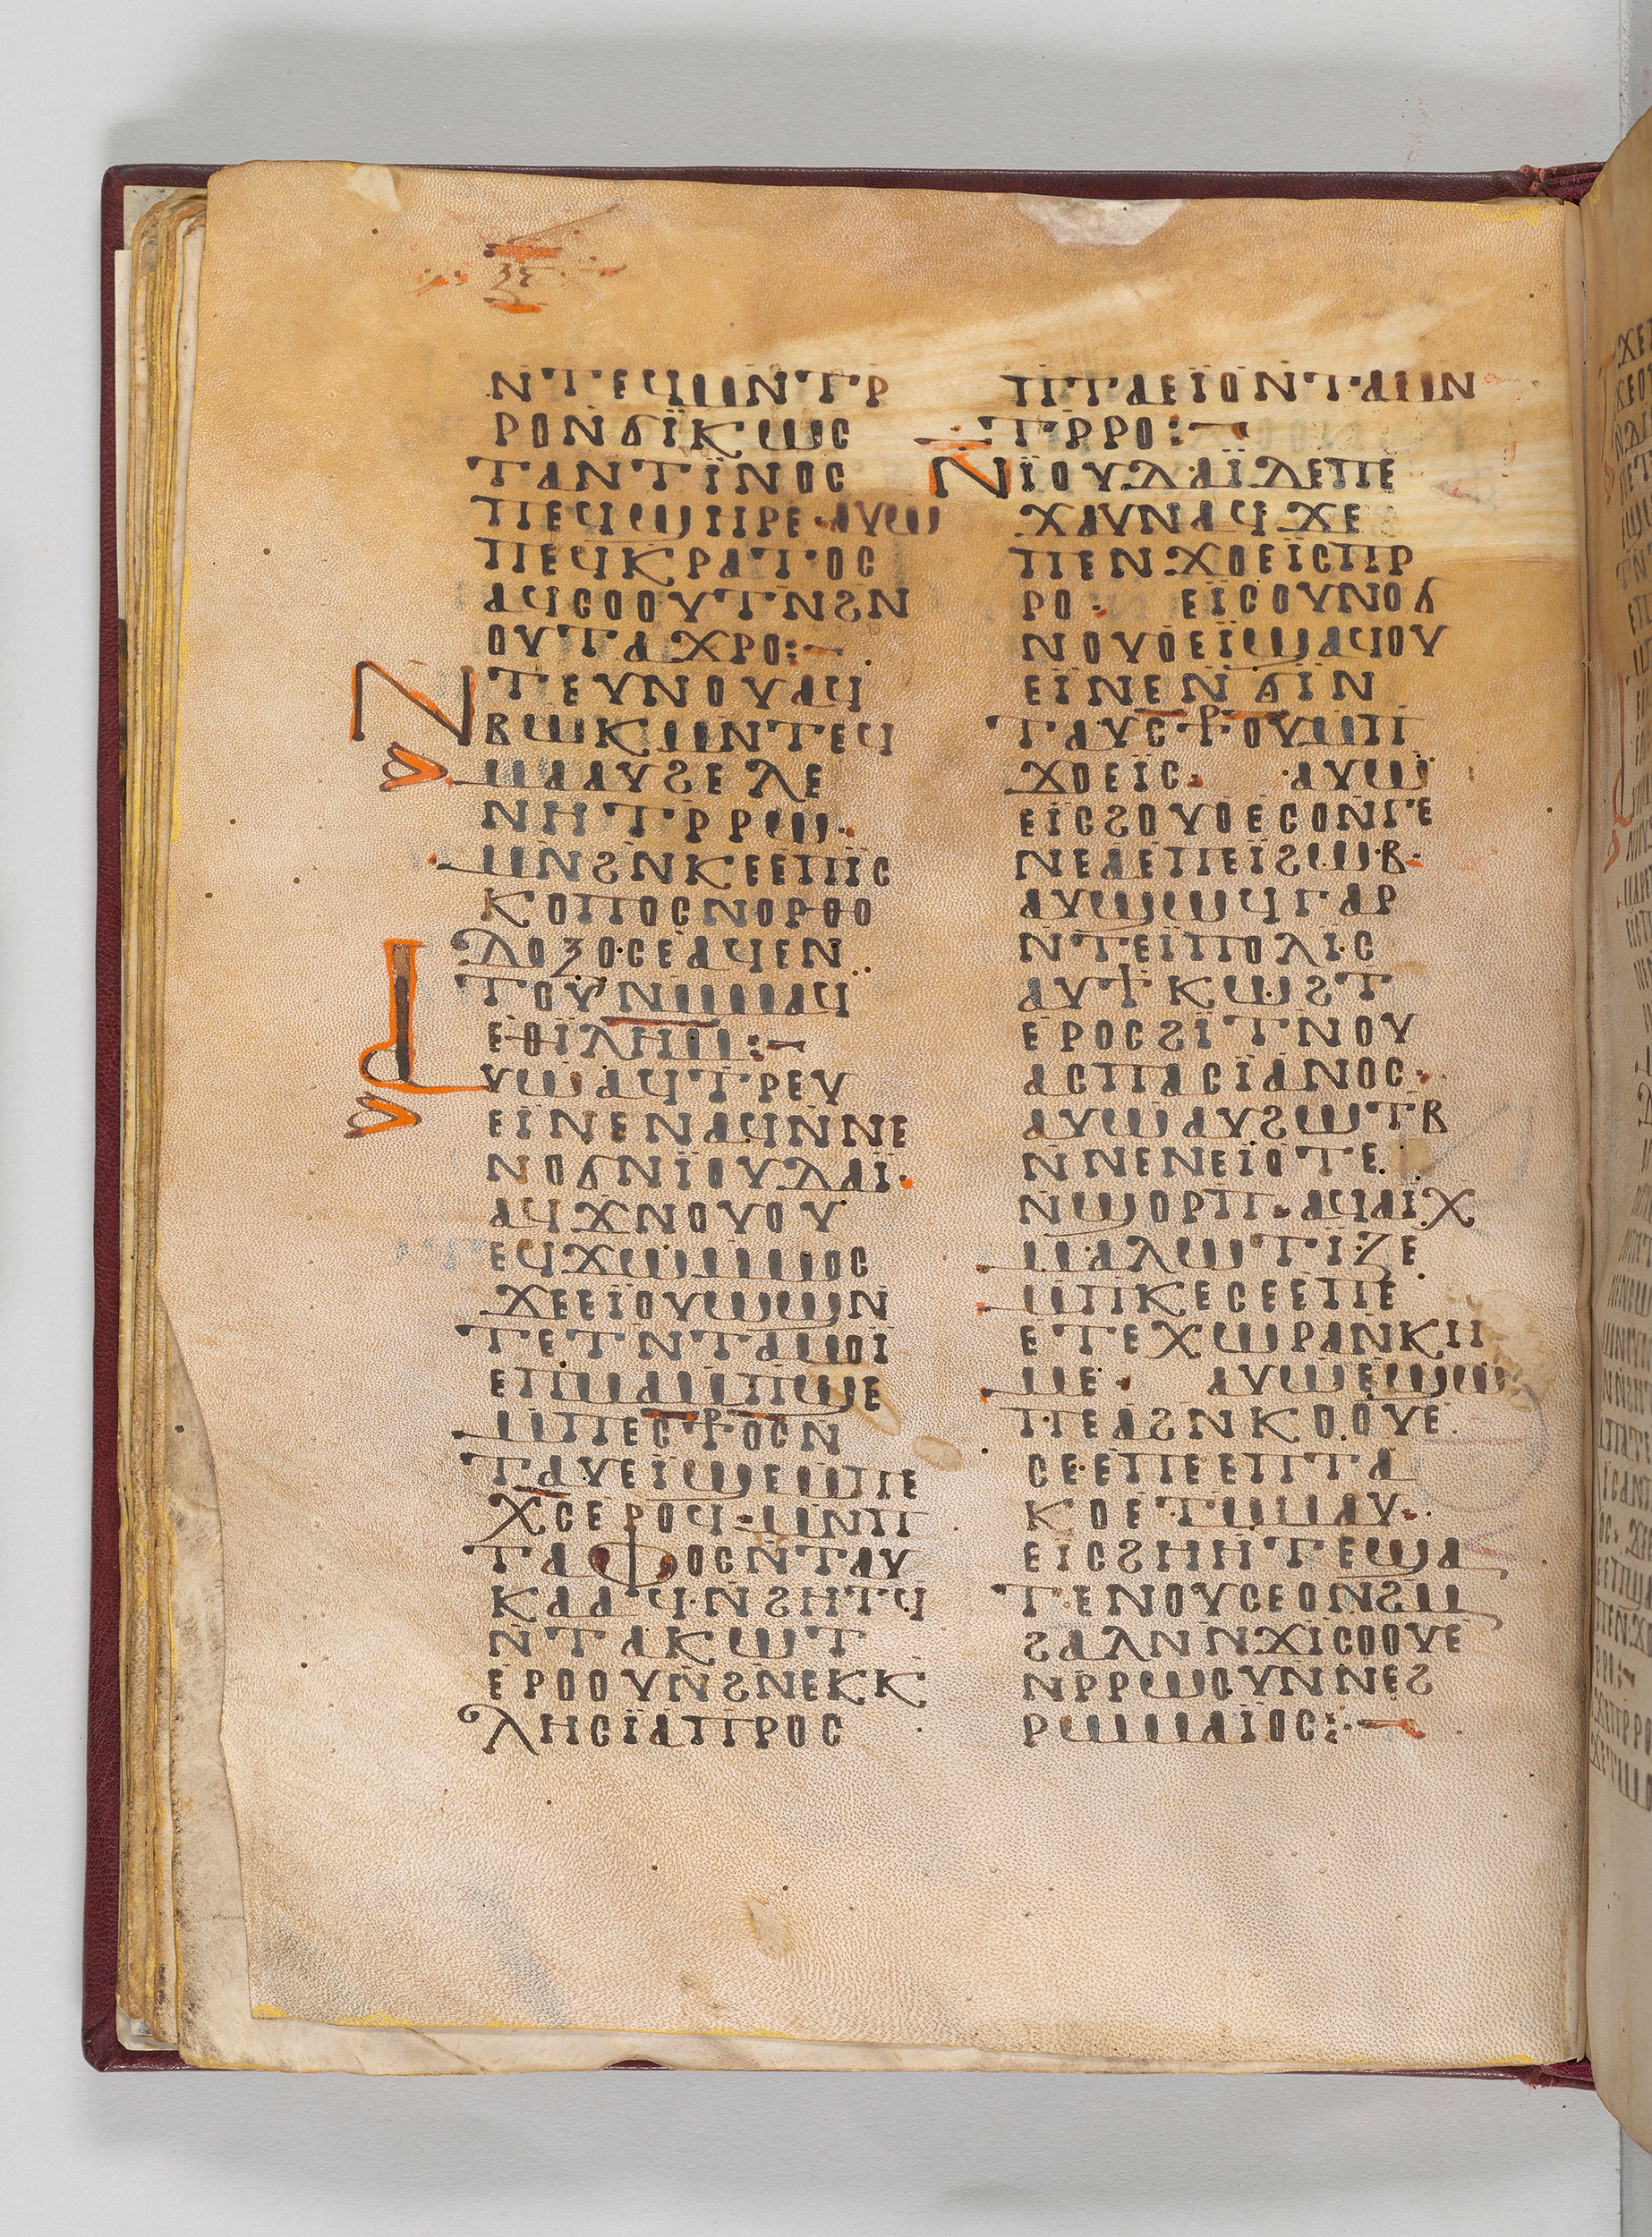 ⲝⲉ
ⲛⲧⲉϥⲙⲛⲧⲣ
ⲣⲟⲛϭⲓ̈ⲕⲱⲥ
ⲧⲁⲛⲧⲓ̈ⲛⲟⲥ
ⲡⲉϥϣⲏⲣⲉ·ⲁⲩⲱ
ⲡⲉϥⲕⲣⲁⲧⲟⲥ
ⲁϥⲥⲟⲟⲩⲧⲛϩⲛ
ⲟⲩⲧⲁϫⲣⲟ:—
ⲛⲧⲉⲩⲛⲟⲩⲁϥ
ⲃⲱⲕⲙⲛⲧⲉϥ
ⲙⲁⲁⲩϩⲉⲗⲉ
ⲛⲏⲧⲣⲣⲱ·
ⲙⲛϩⲛⲕⲉⲉⲡⲓ̈ⲥ
ⲕⲟⲡⲟⲥⲛⲟⲣⲑⲟ
ⲇⲟⲝⲟⲥⲉⲁϥⲉⲛ
ⲧⲟⲩⲛⲙⲙⲁϥ
ⲉⲑⲓ̈ⲗⲏⲙ:—
ⲁⲩⲱⲁϥⲧⲣⲉⲩ
ⲉⲓ̈ⲛⲉⲛⲁϥⲛⲛⲉ
ⲛⲟϭⲛⲓ̈ⲟⲩⲇⲁⲓ̈·
ⲁϥϫⲛⲟⲩⲟⲩ
ⲉϥϫⲱⲙⲙⲟⲥ
ϫⲉⲉⲓ̈ⲟⲩⲱϣⲛ
ⲧⲉⲧⲛⲧⲁⲙⲟⲓ
ⲉⲡⲙⲁⲙⲡϣⲉ
ⲙⲡⲉⲥⲣⲟⲥⲛ
ⲧⲁⲩⲉⲓ̈ϣⲉⲙⲡⲉ
ⲭⲥⲉⲣⲟϥ·ⲙⲛⲡ
ⲧⲁⲫⲟⲥⲛⲧⲁⲩ
ⲕⲁⲁϥ·ⲛϩⲏⲧϥ
ⲛⲧⲁⲕⲱⲧ
ⲉⲣⲟⲟⲩⲛϩⲛⲉⲕⲕ
ⲗⲏⲥⲓ̈ⲁⲡⲣⲟⲥ
ⲡⲧⲁⲉⲓ̈ⲟⲛⲧⲁⲙⲛ
ⲧⲣⲣⲟ:—
ⲛⲓ̈ⲟⲩⲇⲁⲓ̈ⲇⲉⲡⲉ
ϫⲁⲩⲛⲁϥϫⲉ
ⲡⲉⲛϫⲟⲉⲓ̈ⲥⲡⲣ
ⲣⲟ· ⲉⲓ̈ⲥⲟⲩⲛⲟϭ
ⲛⲟⲩⲟⲉⲓ̈ϣⲁϥⲟⲩ
ⲉⲓ̈ⲛⲉⲛϭⲓⲛ
ⲧⲁⲩⲥⲣⲟⲩⲙⲡ
ϫⲟⲉⲓ̈ⲥ· ⲁⲩⲱ
ⲉⲓ̈ⲥϩⲟⲩⲟⲉⲥⲟⲛⲅⲉ
ⲛⲉⲁⲉⲡⲉⲓ̈ϩⲱⲃ·
ⲁⲩϣⲱϥⲅⲁⲣ
ⲛⲧⲉⲓ̈ⲡⲟⲗⲓⲥ
ⲁⲩϯⲕⲱϩⲧ
ⲉⲣⲟⲥϩⲓ̈ⲧⲛⲟⲩ
ⲁⲥⲡⲁⲥⲓ̈ⲁⲛⲟⲥ·
ⲁⲩⲱⲁⲩϩⲱⲧⲃ
ⲛⲛⲉⲛⲉⲓ̈ⲟⲧⲉ
ⲛϣⲟⲣⲡ·ⲁϥⲁⲓⲭ
ⲙⲁⲗⲱⲧⲓⲍⲉ
ⲙⲡⲕⲉⲥⲉⲉⲡⲉ
ⲉⲧⲉⲭⲱⲣⲁⲛⲕⲏ
ⲙⲉ· ⲁⲩⲱⲉϣⲱ
ⲡⲉⲁϩⲛⲕⲟⲟⲩⲉ
ⲥⲉⲉⲡⲉⲉⲡⲧⲁ
ⲕⲟⲉⲧⲙⲙⲁⲩ·
ⲉⲓⲥϩⲏⲏⲧⲉϣⲁ
ⲧⲉⲛⲟⲩⲥⲉⲟⲛϩⲙ
ϩⲁⲗⲛⲛϫⲓⲥⲟⲟⲩⲉ
ⲛⲣⲣⲱⲟⲩⲛⲛⲉϩ
ⲣⲱⲙⲁⲓ̈ⲟⲥ:—